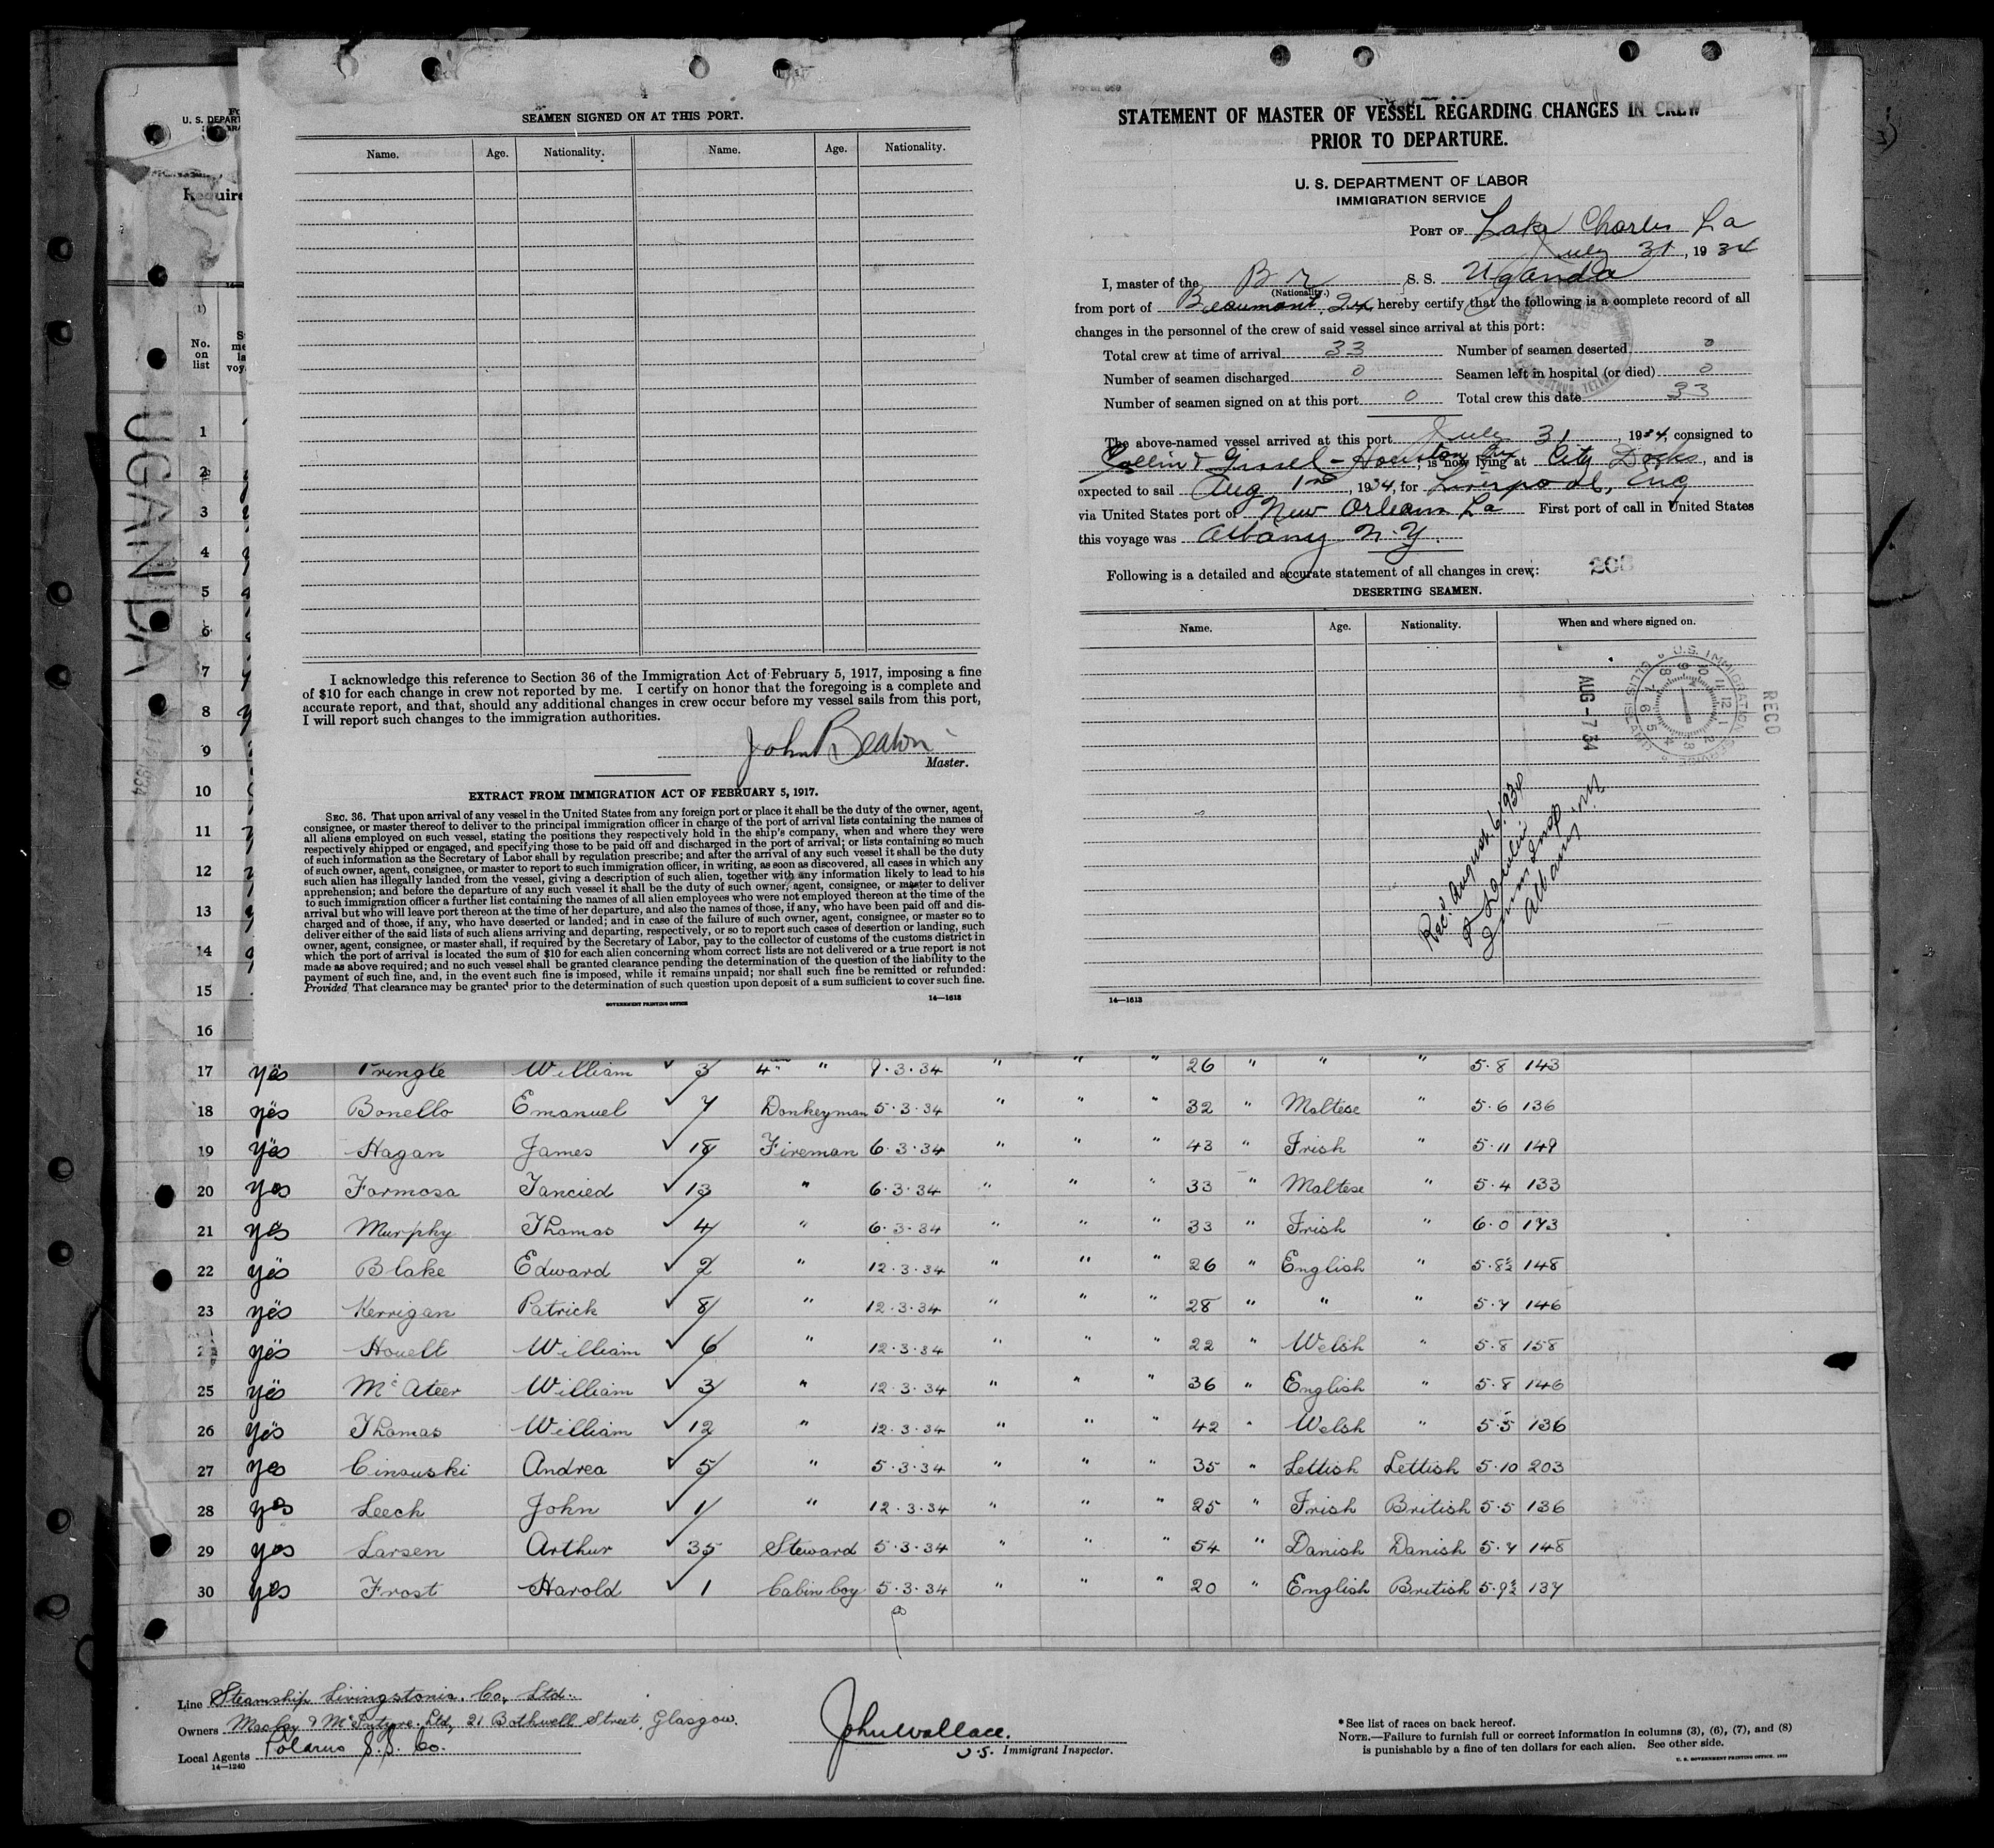 SEAMEN SIGNED ON AT THIS PORT.
Name. Age. Nationality. Name. Age. Nationality.
I acknowledge this reference to Section 36 of the Immigration Act of February 5, 1917, imposing a fine
of $10 for each change in crew not reported by me. I certify on honor that the foregoing is a complete and
accurate report, and that, should any additional changes in crew occur before my vessel sails from this port,
I will report such changes to the immigration authorities.
John Beaton
Master.
EXTRACT FROM IMMIGRATION ACT OF FEBRUARY 5, 1917.
SEC. 36. That upon arrival of any vessel in the United States from any foreign port or place it shall be the duty of the owner, agent,
consignee, or master thereof to deliver to the principal immigration officer in charge of the port of arrival lists containing the names of
all aliens employed on such vessel, stating the positions they respectively hold in the ship's company, when and where they were
respectively shipped or engaged, and specifying those to be paid off and discharged in the port of arrival; or lists containing so much
of such information as the Secretary of Labor shall by regulation prescribe; and after the arrival of any such vessel it shall be the duty
of such owner, agent, consignee, or master to report to such immigration officer, in writing, as soon as discovered, all cases in which any
such alien has illegally landed from the vessel, giving a description of such alien, together with any information likely to lead to his
apprehension; and before the departure of any such vessel it shall be the duty of such owner, agent, consignee, or master to deliver
to such immigration officer a further list containing the names of all alien employees who were not employed thereon at the time of the
arrival but who will leave port thereon at the time of her departure, and also the names of those, if any, who have been paid off and dis-
charged and of those, if any, who have deserted or landed; and in case of the failure of such owner, agent, consignee, or master so to
deliver either of the said lists of such aliens arriving and departing, respectively, or so to report such cases of desertion or landing, such
owner, agent, consignee, or master shall, if required by the Secretary of Labor, pay to the collector of customs of the customs district in
which the port of arrival is located the sum of $10 for each alien concerning whom correct lists are not delivered or a true report is not
made as above required; and no such vessel shall be granted clearance pending the determination of the question of the liability to the
payment of such fine, and, in the event such fine is imposed, while it remains unpaid; nor shall such fine be remitted or refunded:
Provided, That clearance may be granted prior to the determination of such question upon deposit of a sum sufficient to cover such fine.
GOVERNMENT PRINTING OFFICE 14—1613
STATEMENT OF MASTER OF VESSEL REGARDING CHANGES IN CREW
PRIOR TO DEPARTURE.
U. S. DEPARTMENT OF LABOR
IMMIGRATION SERVICE
PORT OF Lake Charles La
July 31, 1934
I, master of the Br S. S. Uganda
(Nationality.)
from port of Beaumont, Tx, hereby certify that the following is a complete record of all
changes in the personnel of the crew of said vessel since arrival at this port:
Total crew at time of arrival 33 Number of seamen deserted 0
Number of seamen discharged 0 Seamen left in hospital (or died) 0
Number of seamen signed on at this port 0 Total crew this date 33
The above-named vessel arrived at this port July 31, 1934, consigned to
Gissel - Houston Tex, is now lying at City Docks, and is
expected to sail Aug 1st, 1934, for Liverpool, Eng
via United States port of New Orleans La First port of call in United States
this voyage was Albany N.Y.
Following is a detailed and accurate statement of all changes in crew: 208
DESERTING SEAMEN.
Name. Age. Nationality. When and where signed on.
RECD
U.S. IMMIGRATION SERVICE
ELLIS ISLAND
AUG -7 34
Rec'd August 6, 1934
Imm Insp
Albany NY
14—1613
U. S. DEPART
Require
(1)
No.
on
list
UGANDA
1
2
3
4
5
6
7
8
9
10
11
12
13
14
15
16
17 yes Pringle William ✓ 3 4th " 9.3.34 " " " 26 " " " 5.8 143
18 yes Bonello Emanuel ✓ 7 Donkeyman 5.3.34 " " " 32 " Maltese " 5.6 136
19 yes Hagan James ✓ 18 Fireman 6.3.34 " " " 43 " Irish " 5.11 149
20 yes Formosa Tancied ✓ 13 " 6.3.34 " " " 33 " Maltese " 5.4 133
21 yes Murphy Thomas ✓ 4 " 6.3.34 " " " 33 " Irish " 6.0 173
22 yes Blake Edward ✓ 2 " 12.3.34 " " " 26 " English " 5.8½ 148
23 yes Kerrigan Patrick ✓ 8 " 12.3.34 " " " 28 " " " 5.7 146
24 yes Howell William ✓ 6 " 12.3.34 " " " 22 " Welsh " 5.8 158
25 yes McAteer William ✓ 3 " 12.3.34 " " " 36 " English " 5.8 146
26 yes Thomas William ✓ 12 " 12.3.34 " " " 42 " Welsh " 5.5 136
27 yes Cinouski Andrea ✓ 5 " 5.3.34 " " " 35 " Lettish Lettish 5.10 203
28 yes Leech John ✓ 1 " 12.3.34 " " " 25 " Irish British 5.5 136
29 yes Larsen Arthur ✓ 35 Steward 5.3.34 " " " 54 " Danish Danish 5.7 148
30 yes Frost Harold ✓ 1 Cabin boy 5.3.34 " " " 20 " English British 5.9½ 137
Line Steamship Livingstonia. Co, Ltd.
Owners Maclay & McIntyre Ltd, 21 Bothwell Street, Glasgow.
Local Agents Polarus S.S. Co.
14—1240
John Wallace.
U.S. Immigrant Inspector.
* See list of races on back hereof.
NOTE.—Failure to furnish full or correct information in columns (3), (6), (7), and (8)
is punishable by a fine of ten dollars for each alien. See other side.
U. S. GOVERNMENT PRINTING OFFICE